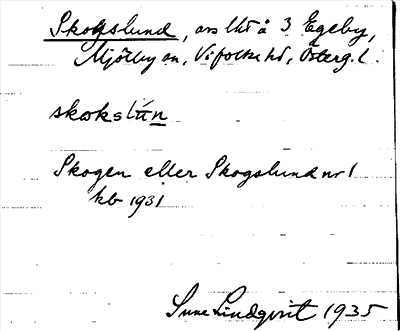 Skogslund, avs lht å 3 Egeby,
Mjölby sn, Vifolka hd, Österg. l.
skokslún
Skogen eller Skogslund nr 1
kb 1931
Sune Lindqvist 1935